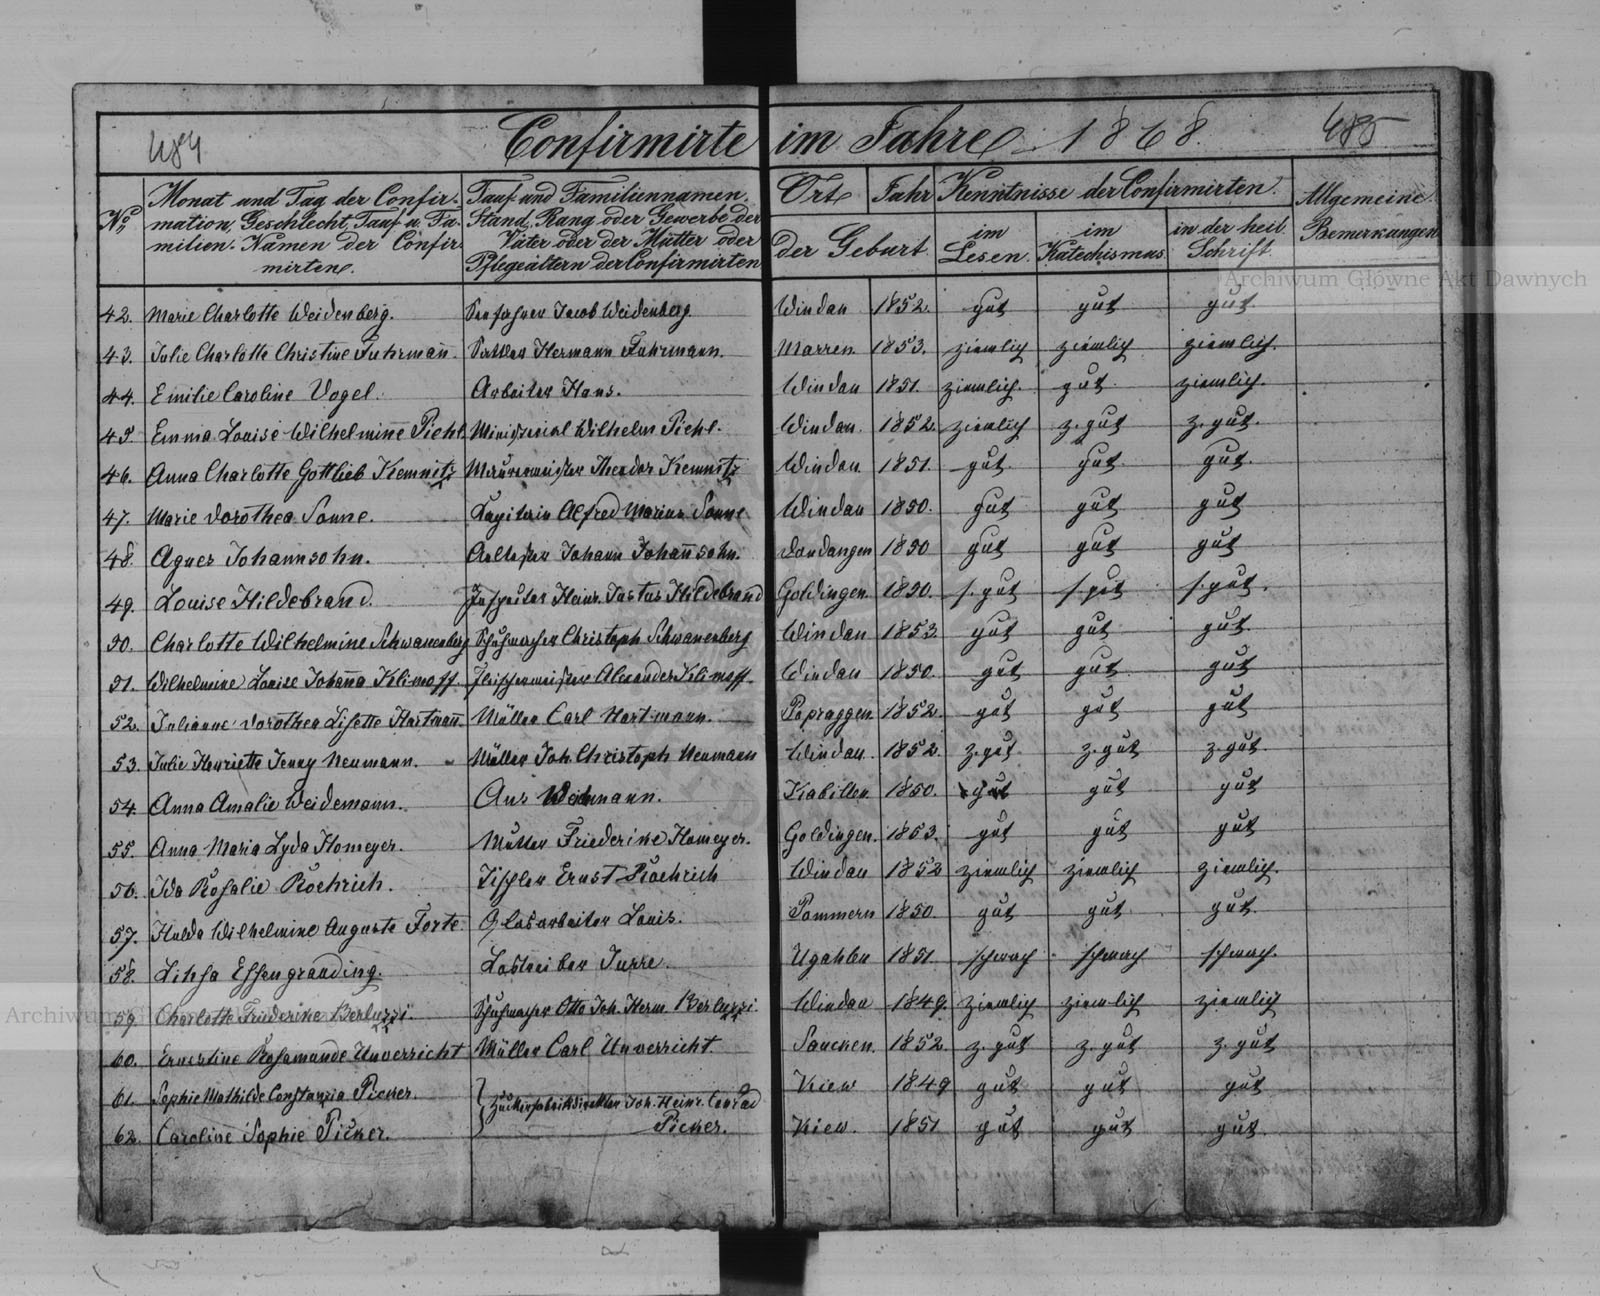 484
Confirmirte im Jahre 1868.
485
No
Monat und Tag der Confir-
mation, Geschlecht, Tauf- u. Fa-
milien-Namen der Confir
mirten.
Tauf und Familiennamen,
Stand, Rang oder Gewerbe der
Väter oder der Mütter oder
Pflegeältern der Confirmirten
Ort Jahr
der Geburt
Kenntnisse der Confirmirten.
im Lesen.
im Katechismus
in der heil. Schrift.
Allgemeine
Bemerkungen
Archiwum Główne Akt Dawnych
42. Marie Charlotte Weidenberg. Jacob Weidenberg. Windau 1852. gut gut gut
43. Julie Charlotte Christine Fuhrmañ. Sattler Hermann Fuhrmann. Warren 1853. ziemlich ziemlich ziemlich.
44. Emilie Caroline Vogel. Arbeiter Hans. Windau 1851. ziemlich. gut ziemlich.
45. Emma Louise Wilhelmine Piehl Ministerial Wilhelm Piehl. Windau. 1852. ziemlich z. gut z. gut.
46. Anna Charlotte Gottlieb Kemnitz Maurermeister Theodor Kemnitz Windau 1851. gut. gut gut.
47. Marie Dorothea Sonne. Capitain Alfred Marius Sonne Windau 1850. gut gut gut
48. Agnes Johannsohn. Aeltester Johann Johañsohn. Dondangen 1850 gut gut gut
49. Louise Hildebrand. Inspector Heinr. Justus Hildebrand Goldingen. 1850. s. gut s. gut s. gut.
50. Charlotte Wilhelmine Schwanenberg Schuhmacher Christoph Schwanenberg Windau 1853. gut gut gut.
51. Wilhelmine Louise Johaña Klimoff. Fleischermeister Alexander Klimoff. Windau 1850. gut gut gut
52. Julianne Dorothea Lisette Hartmañ Müller Carl Hartmann. Popraggen. 1852. gut gut gut
53. Julie Henriette Jenny Neumann. Müller Joh. Christoph Neumann Windau. 1852. z. gut z. gut z. gut.
54. Anna Amalie Weidemann. Kabillen. 1850. gut gut gut
55. Anna Maria Lyda Homeyer. Mutter Friederike Homeyer. Goldingen. 1853. gut gut gut
56. Ida Rosalie Roehrich. Tischler Ernst Roehrich Windau 1852 ziemlich ziemlich ziemlich.
57. Hulda Wilhelmine Auguste Forte. Glasarbeiter Louis. Pommern 1850 gut gut gut.
58. Lihsa Effengrauding. Lostreiber Jurre. Ugahlen 1851 schwach schwach schwach.
59. Charlotte Friederike Berluzzi. Schuhmacher Otto Joh. Herm. Berluzzi. Windau 1849. ziemlich ziemlich ziemlich
Archiwum
60. Ernestine Rosamunde Unverricht Müller Carl Unverricht. Saucken. 1852. z. gut z. gut z. gut
61. Sophie Mathilde Constanzia Picker. Zuckerfabrikdirektor Joh. Heinr. Conrad Kiew 1849 gut gut gut
62. Caroline Sophie Picker. Picker. Kiew. 1851 gut gut gut.